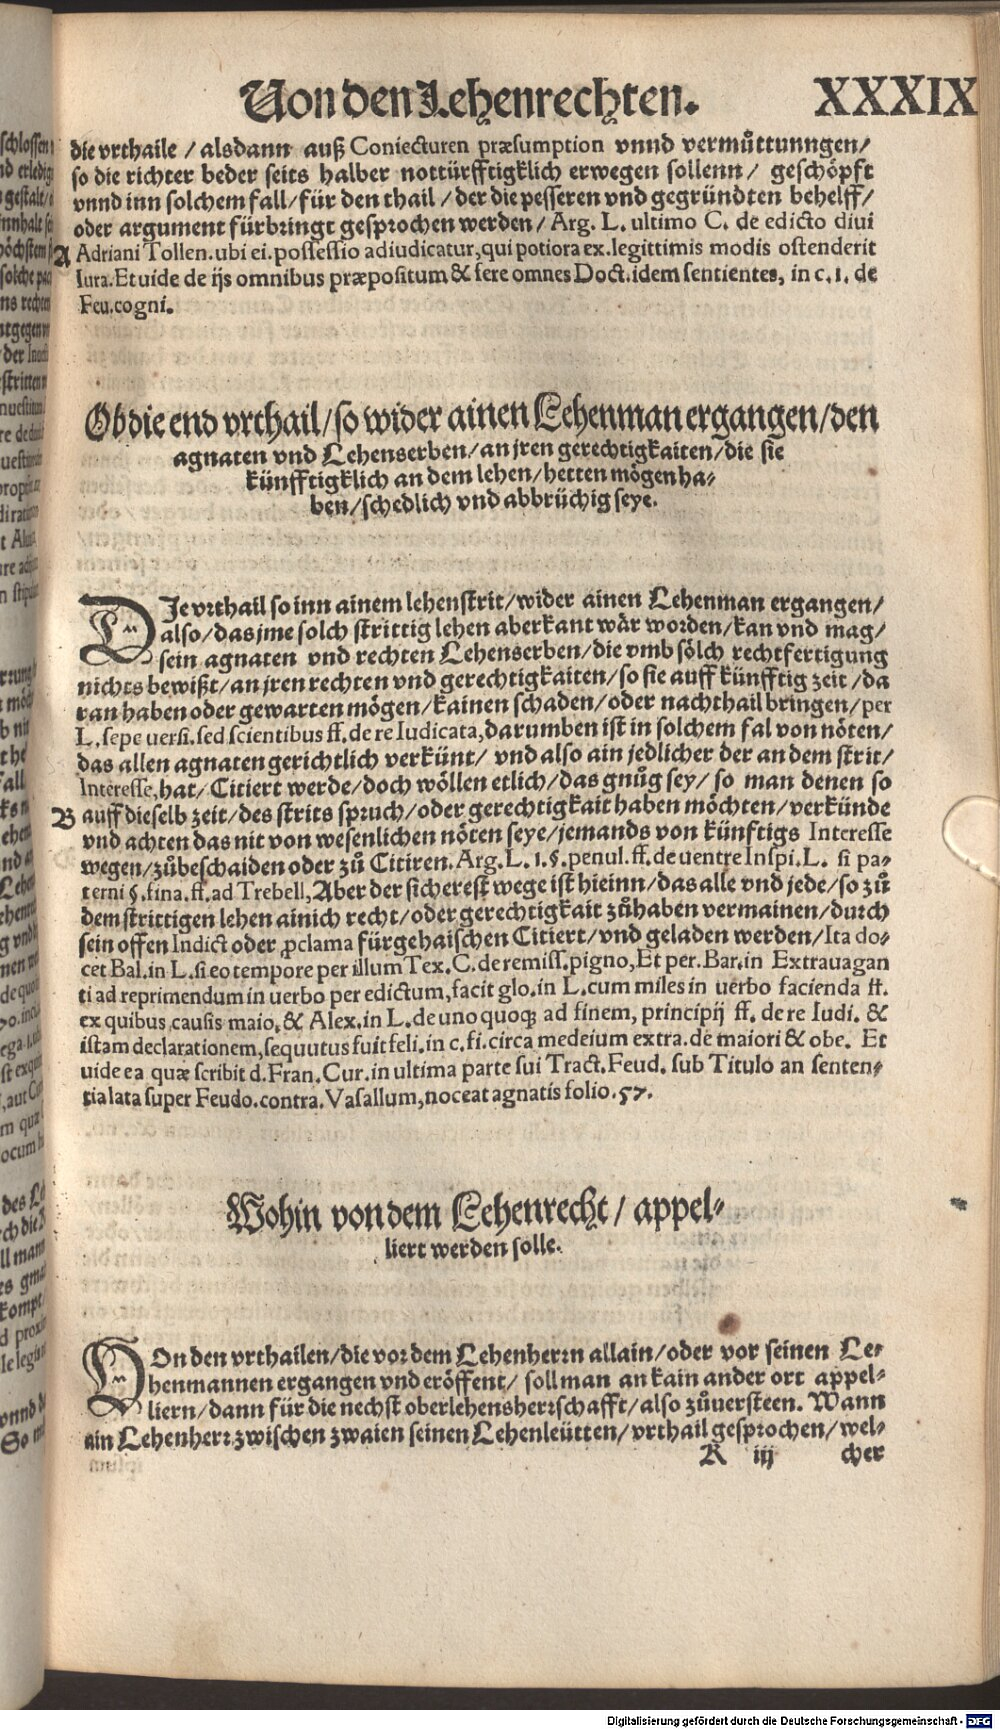 Von den Lehenrechten. XXXIX
die vrthaile / alsdann auß Coniecturen præsumption vnnd vermůttunngen/
so die richter beder seits halber nottürfftigklich erwegen sollenn / geschöpft
vnnd inn solchem fall / für den thail / der die pesseren vnd gegründten behelff/
oder argument fürbringt gesprochen werden / Arg. L. ultimo C. de edicto diui
A Adriani Tollen. ubi ei. possessio adiudicatur, qui potiora ex. legittimis modis ostenderit
Iura. Et uide de ijs omnibus præpositum & fere omnes Doct. idem sentientes, in c. 1. de
Feu. cogni.
Ob die end vrthail / so wider ainen Lehenman ergangen / den
agnaten vnd Lehenserben / an jren gerechtigkaiten / die sie
künfftigklich an dem lehen / hetten mögen ha-
ben / schedlich vnd abbrüchig seye.
DJe vrthail so inn ainem lehenstrit / wider ainen Lehenman ergangen /
also / das jme solch strittig lehen aberkant wär worden / kan vnd mag /
sein agnaten vnd rechten Lehenserben / die vmb sölch rechtfertigung
nichts bewißt / an jren rechten vnd gerechtigkaiten / so sie auff künfftig zeit / da
ran haben oder gewarten mögen / kainen schaden / oder nachthail bringen / per
L. sepe uersi. sed scientibus ff. de re Iudicata, darumben ist in solchem fal von nöten /
das allen agnaten gerichtlich verkünt / vnd also ain jedlicher der an dem strit /
Interesse, hat / Citiert werde / doch wöllen etlich / das gnůg sey / so man denen so
B auff dieselb zeit / des strits spruch / oder gerechtigkait haben möchten / verkünde
vnd achten das nit von wesenlichen nöten seye / jemands von künftigs Interesse
wegen / zůbeschaiden oder zů Citiren. Arg. L. 1. §. penul. ff. de uentre Inspi. L. si pa-
terni §. fina. ff. ad Trebell, Aber der sicherest wege ist hieinn / das alle vnd jede / so zů
dem strittigen lehen ainich recht / oder gerechtigkait zůhaben vermainen / durch
sein offen Indict oder ꝓclama fürgehaischen Citiert / vnd geladen werden / Ita do-
cet Bal. in L. si eo tempore per illum Tex. C. de remiss. pigno, Et per. Bar. in Extrauagan
ti ad reprimendum in uerbo per edictum, facit glo. in L. cum miles in uerbo facienda ff.
ex quibus causis maio. & Alex. in L. de uno quoqꝫ ad finem, principij ff. de re Iudi. &
istam declarationem, sequutus fuit feli. in c. fi. circa medeium extra. de maiori & obe. Et
uide ea quæ scribit d. Fran. Cur. in ultima parte sui Tract. Feud. sub Titulo an senten-
tia lata super Feudo. contra. Vasallum, noceat agnatis folio. 57.
Wohin von dem Lehenrecht / appel-
liert werden solle.
VOn den vrthailen / die vor dem Lehenherrn allain / oder vor seinen Le-
henmannen ergangen vnd eröffent / soll man an kain ander ort appel-
liern / dann für die nechst oberlehensherrschafft / also zůuersteen. Wann
ain Lehenherr zwischen zwaien seinen Lehenleütten / vrthail gesprochen / wel-
K iij cher
Digitalisierung gefördert durch die Deutsche Forschungsgemeinschaft - DFG